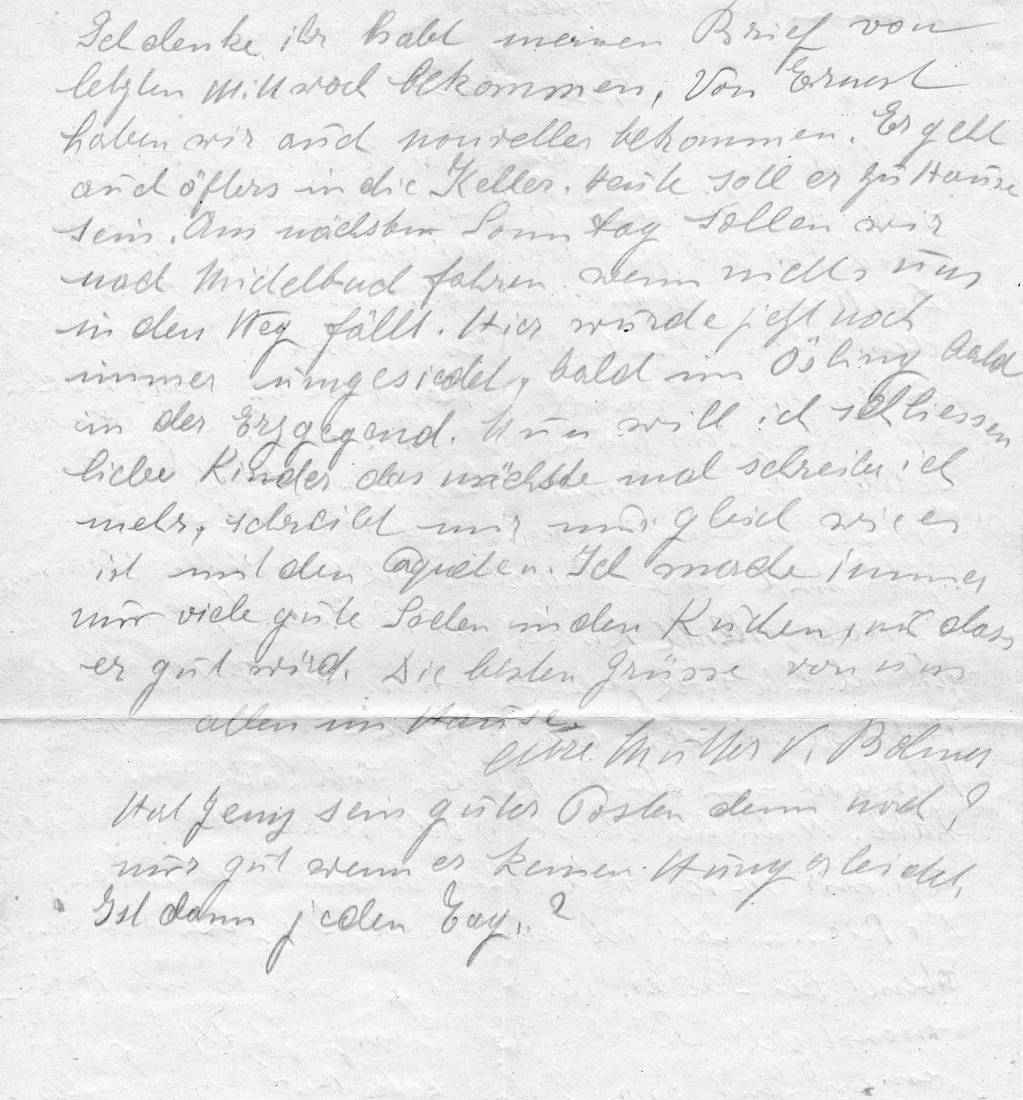 Ich denke ihr habt meinen Brief von
letzten Mittwoch bekommen, Von Ernest
haben wir auch nouvelles bekommen. Er geht
auch öfters in die Keller. Heute soll er zu Hause
sein. Am nächsten Sonntag sollen wir
nach fahren wenn nichts uns
in den Weg fällt. Hier wurde jetzt noch
immer umgesiedet, bald im Ösling bald
in der Erzgegend. Nun will ich schliessen
liebe Kinder das nächste mal schreibe ich
mehr, schreibt mir nur gleich wie es
ist mit den. Ich mache immer
nur viele gute Sachen in den Kuchen, nur dass
er gut wird. Die besten Grüsse von uns
allen im Hause.
eure Mutter V. Bohmer
Hat Jeng sein guter Posten denn noch?
nur gut wenn er keinen Hunger leidet.
Ist dann jeden Tag..?